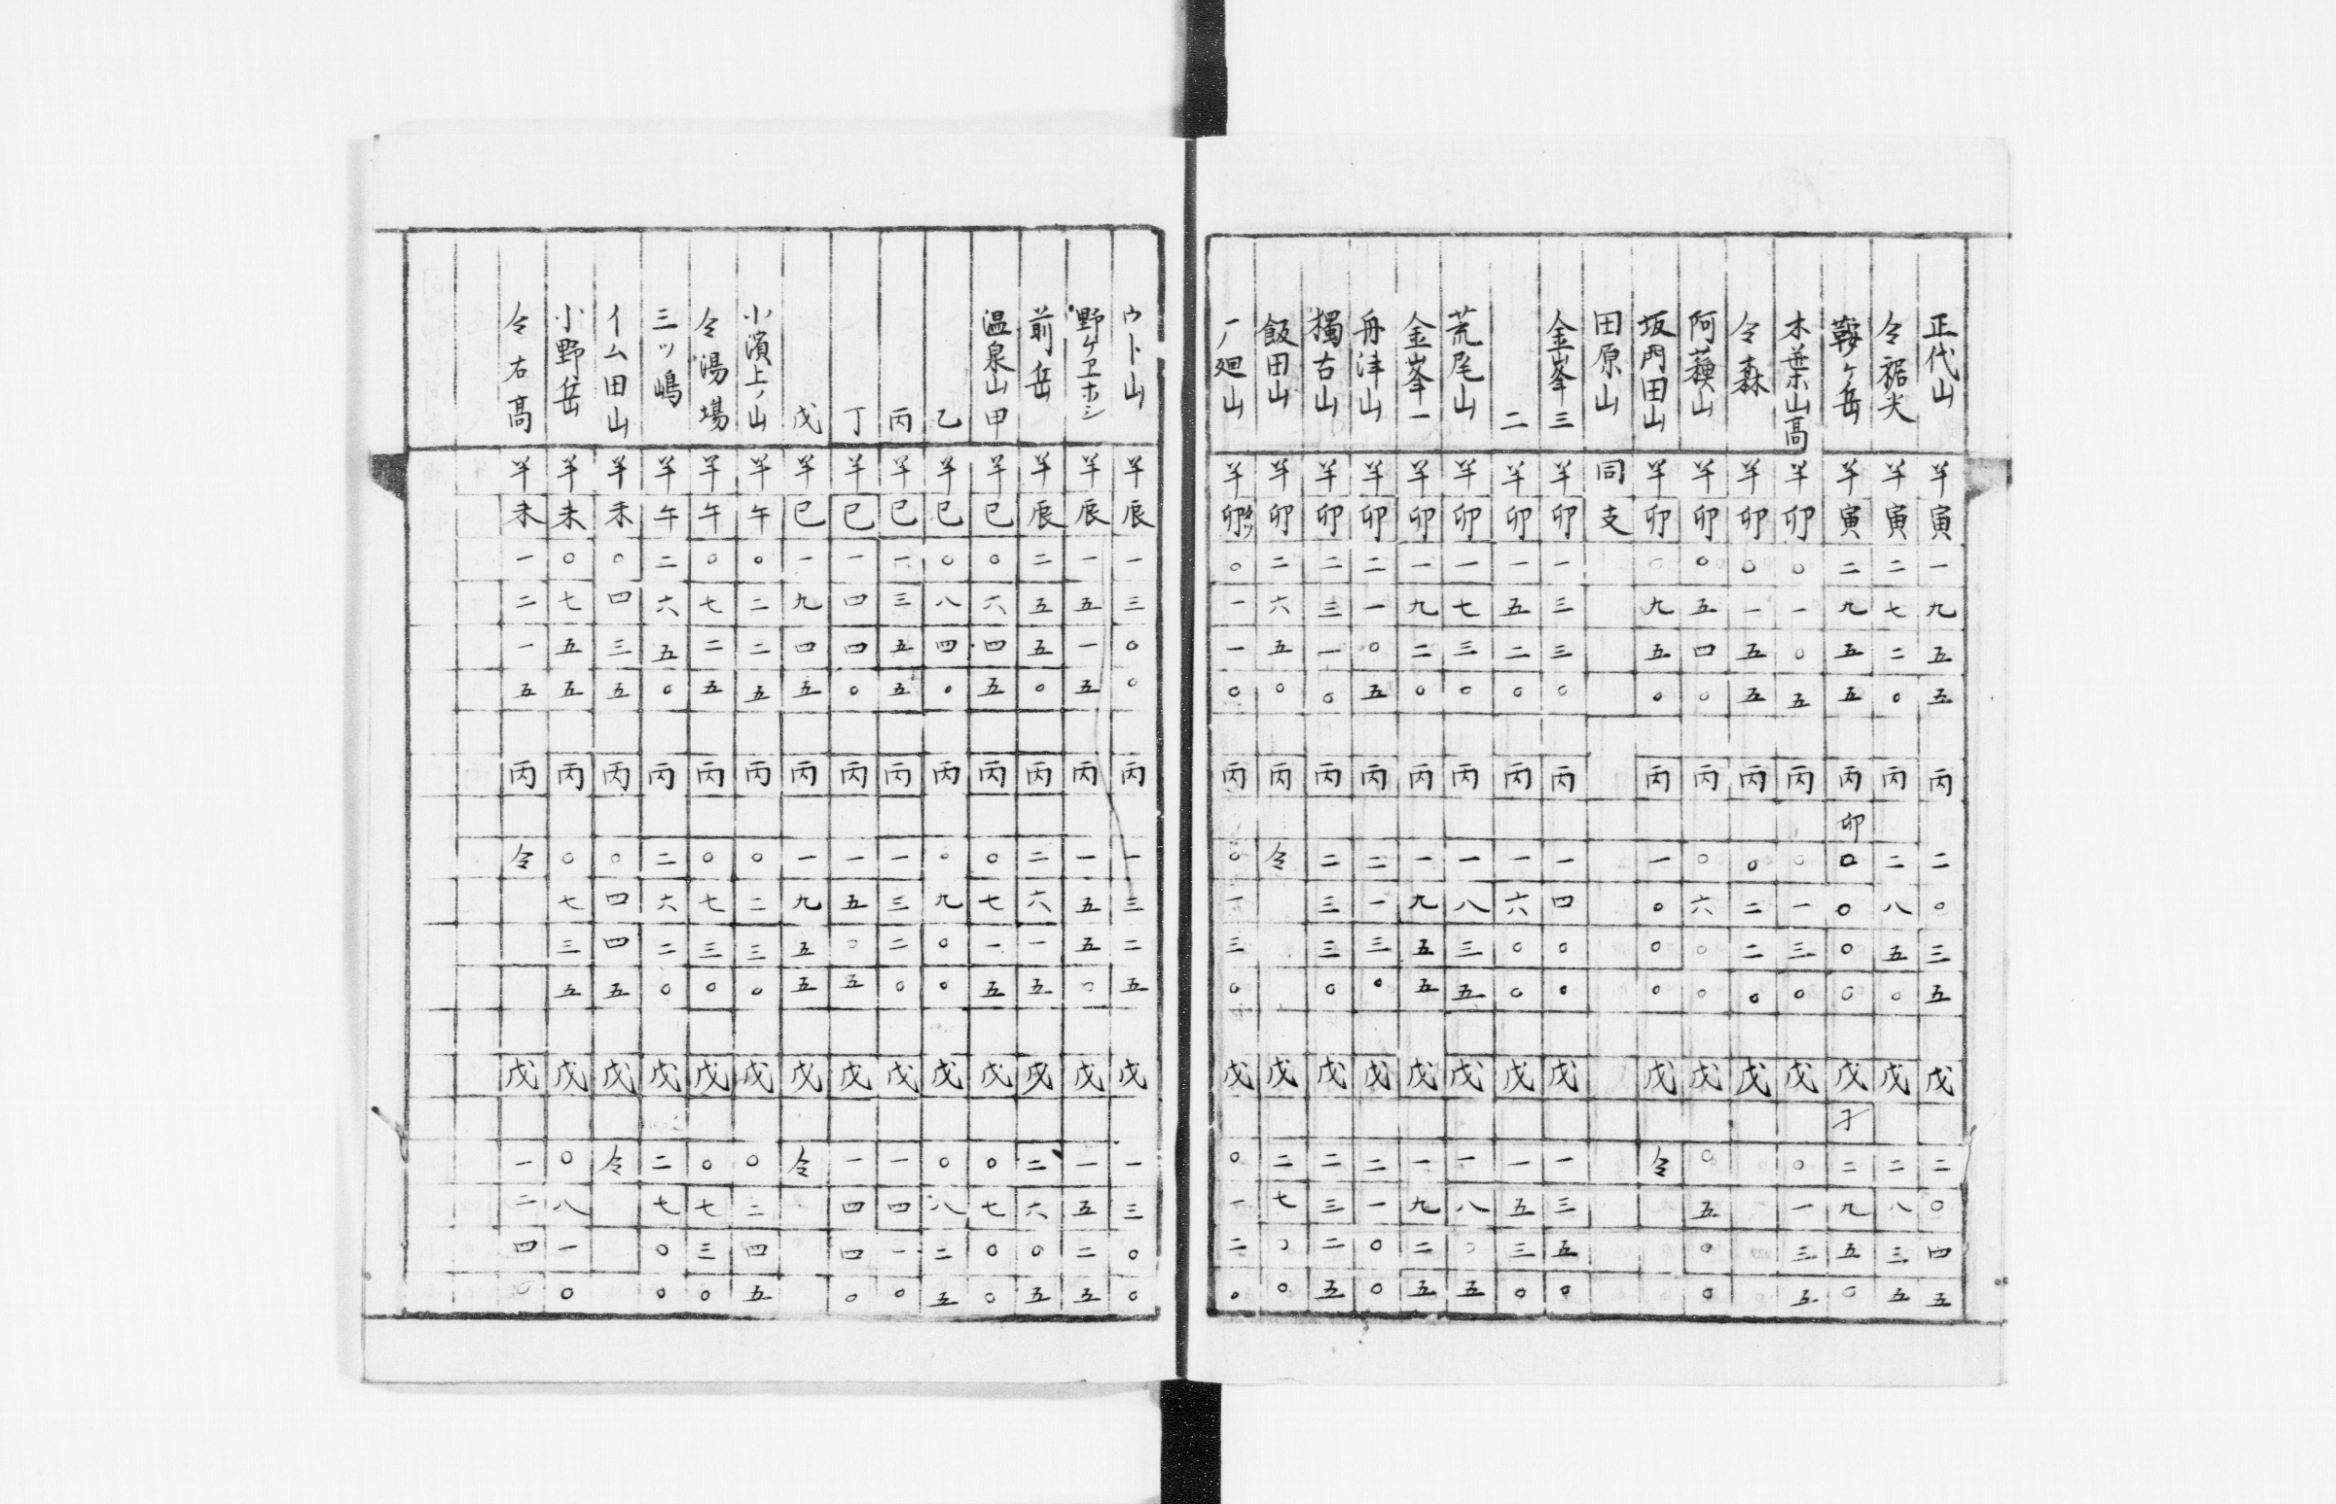 正代山 半寅一九五五 丙二〇三五 戊二〇四五
仝裾尖 半寅二七二〇 丙二八五〇 戊二八三五
鞍ヶ岳 半寅二九五五 丙卯〇〇〇〇 戊子二九五〇
木葉山高 半卯〇一〇五 丙〇一三〇 戊〇一三五
仝森 半卯〇一五五 丙〇二二〇 戊
阿蘓山 半卯〇五四〇 丙〇六〇〇 戊〇五〇〇
坂門田山 半卯〇九五〇 丙一〇〇〇 戊仝
田原山 同支
金峯三 半卯一三三〇 丙一四〇〇 戊一三五〇
二 半卯一五二〇 丙一六〇〇 戊一五三〇
荒尾山 半卯一七三〇 丙一八三五 戊一八〇五
金峯一 半卯一九二〇 丙一九五五 戊一九二五
舟津山 半卯二一〇五 丙二一三〇 戊二一〇〇
獨古山 半卯二三一〇 丙二三三〇 戊二三二五
飯田山 半卯二六五〇 丙仝 戊二七〇〇
一ノ廻山 半卯〇一一〇 丙〇一三〇 戊〇一二〇
ウト山 半辰一三〇〇 丙一三二五 戊一三〇〇
野ゲヱホシ 半辰一五一五 丙一五五〇 戊一五二五
前岳 半辰二五五〇 丙二六一五 戊二六〇五
温泉山甲 半巳〇六四五 丙〇七一五 戊〇七〇〇
乙 半巳〇八四〇 丙〇九〇〇 戊〇八二五
丙 半巳一三五五 丙一三二〇 戊一四一〇
丁 半巳一四四〇 丙一五〇五 戊一四四〇
戊 半巳一九四五 丙一九五五 戊仝
小濱上ノ山 半午〇二二五 丙〇二三〇 戊〇二四五
仝湯場 半午〇七二五 丙〇七三〇 戊〇七三〇
三ッ嶋 半午二六五〇 丙二六二〇 戊二七〇〇
イム田山 半未〇四三五 丙〇四四五 戊仝
小野岳 半未〇七五五 丙〇七三五 戊〇八一〇
仝右高 半未一二一五 丙仝 戊一二四〇